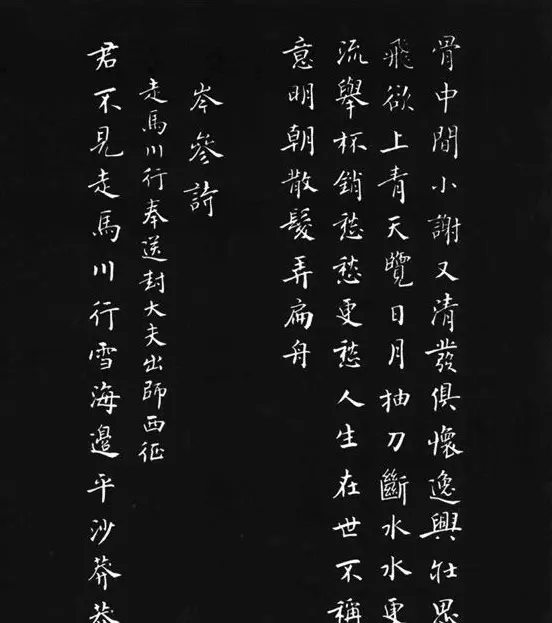 骨中間小謝又清發俱懷逸興壯思
飛欲上青天覽日月抽刀斷水水更
流舉杯銷愁愁更愁人生在世不稱
意明朝散髮弄扁舟
岑參詩
走馬川行奉送封大夫出師西征
君不見走馬川行雪海邊平沙莽莽